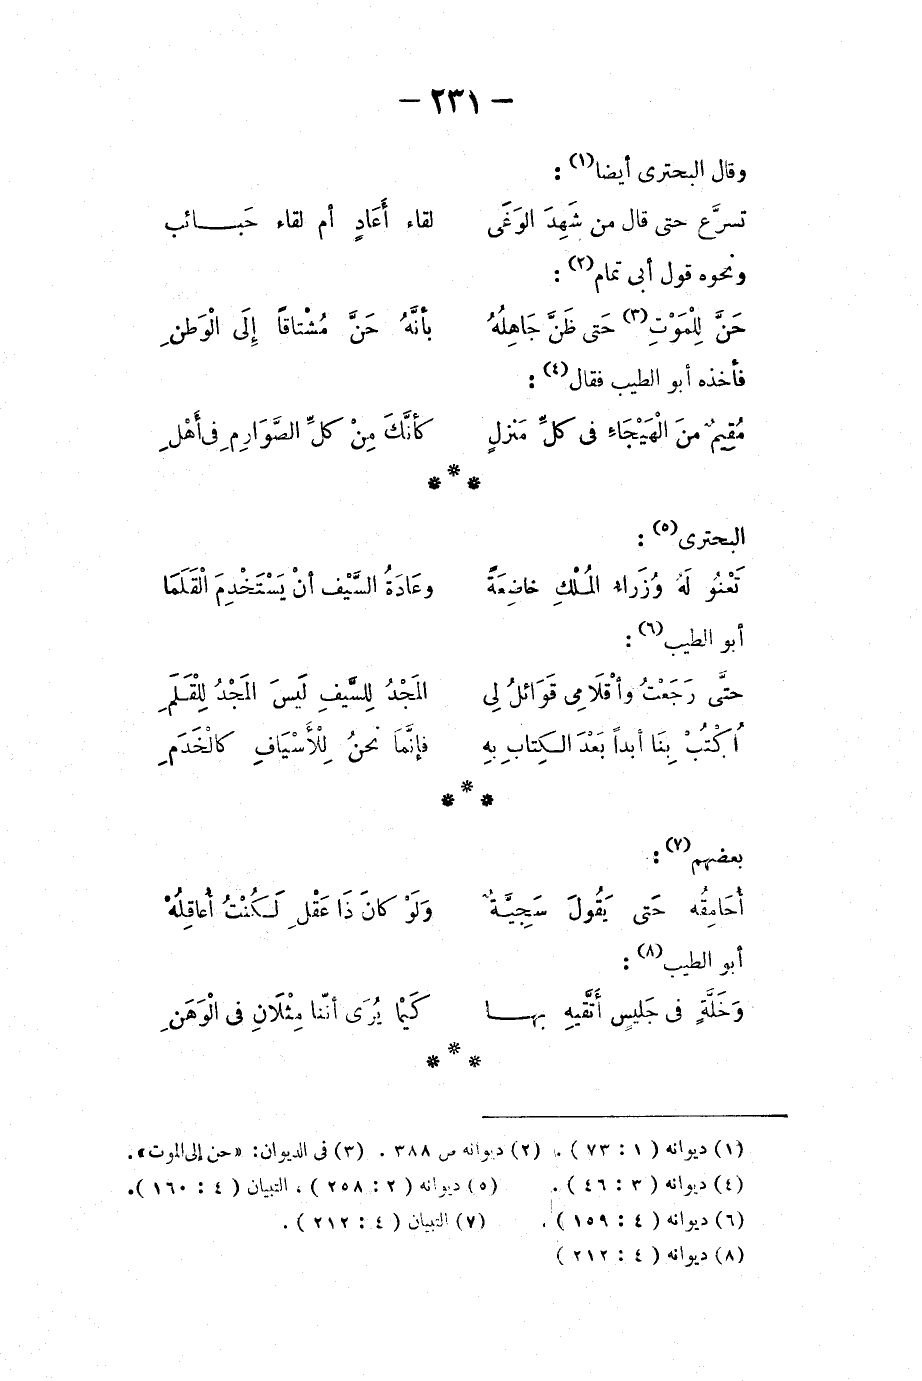 — ٢٣١ —
وقال البحترى أيضا(١) :
تسرَّع حتى قال من شَهِدَ الوَغَى لقاء أَعَادٍ أم لقاء حَبـــائب
ونحوه قول أبى تمام(٢) :
حَنَّ لِلْمَوْتِ(٣) حَتى ظَنَّ جَاهِلُهُ بأنَّهُ حَنَّ مُشْتاقاً إِلَى الْوَطنِ
فأخذه أبو الطيب فقال(٤) :
مُقِيمٌ منَ الْهَيْجَاءِ فى كلِّ مَنْزلٍ كأنَّكَ مِنْ كلِّ الصَّوَارِمِ فى أَهْلِ
* * *
البحترى(٥) :
تَعْنُو لَهُ وُزَراء المُلْكِ خاضِعَةً وعَادَةُ السَّيْف أنْ يَسْتَخْدِمَ الْقَلَمَا
أبو الطيب(٦) :
حتَّى رَجَعْتُ وأقْلَامِى قَوَائلُ لِى المَجْدُ لِلسَّيفِ لَيسَ المَجْدُ لِلْقَلَمِ
اُكْتُبْ بِنَا أبداً بَعْدَ الكِتابِ بِهِ فإنَّمَا نحنُ لِلْأَسْيَافِ كالْخَدَمِ
* * *
بعضهم(٧) :
أُحَامِقُه حَتى يَقُولَ سَجِيَّةٌ وَلَوْ كانَ ذَا عَقْلٍ لَكُنْتُ أُعاقِلُهْ
أبو الطيب(٨) :
وَخَلَّةٍ فى جَليسٍ أَتَّقيهِ بهـــا كَيْما يُرَى أنّنا مِثْلَانِ فى الْوَهَنِ
* * *
(١) ديوانه ( ١ : ٧٣ ) . (٢) ديوانه ص ٣٨٨ . (٣) فى الديوان: «حن إلى الموت» .
(٤) ديوانه ( ٣ : ٤٦ ) . (٥) ديوانه ( ٢ : ٢٥٨ ) ، التبيان ( ٤ : ١٦٠ ).
(٦) ديوانه ( ٤ : ١٥٩ ) . (٧) التبيان ( ٤ : ٢١٢ ) .
(٨) ديوانه ( ٤ : ٢١٢ )